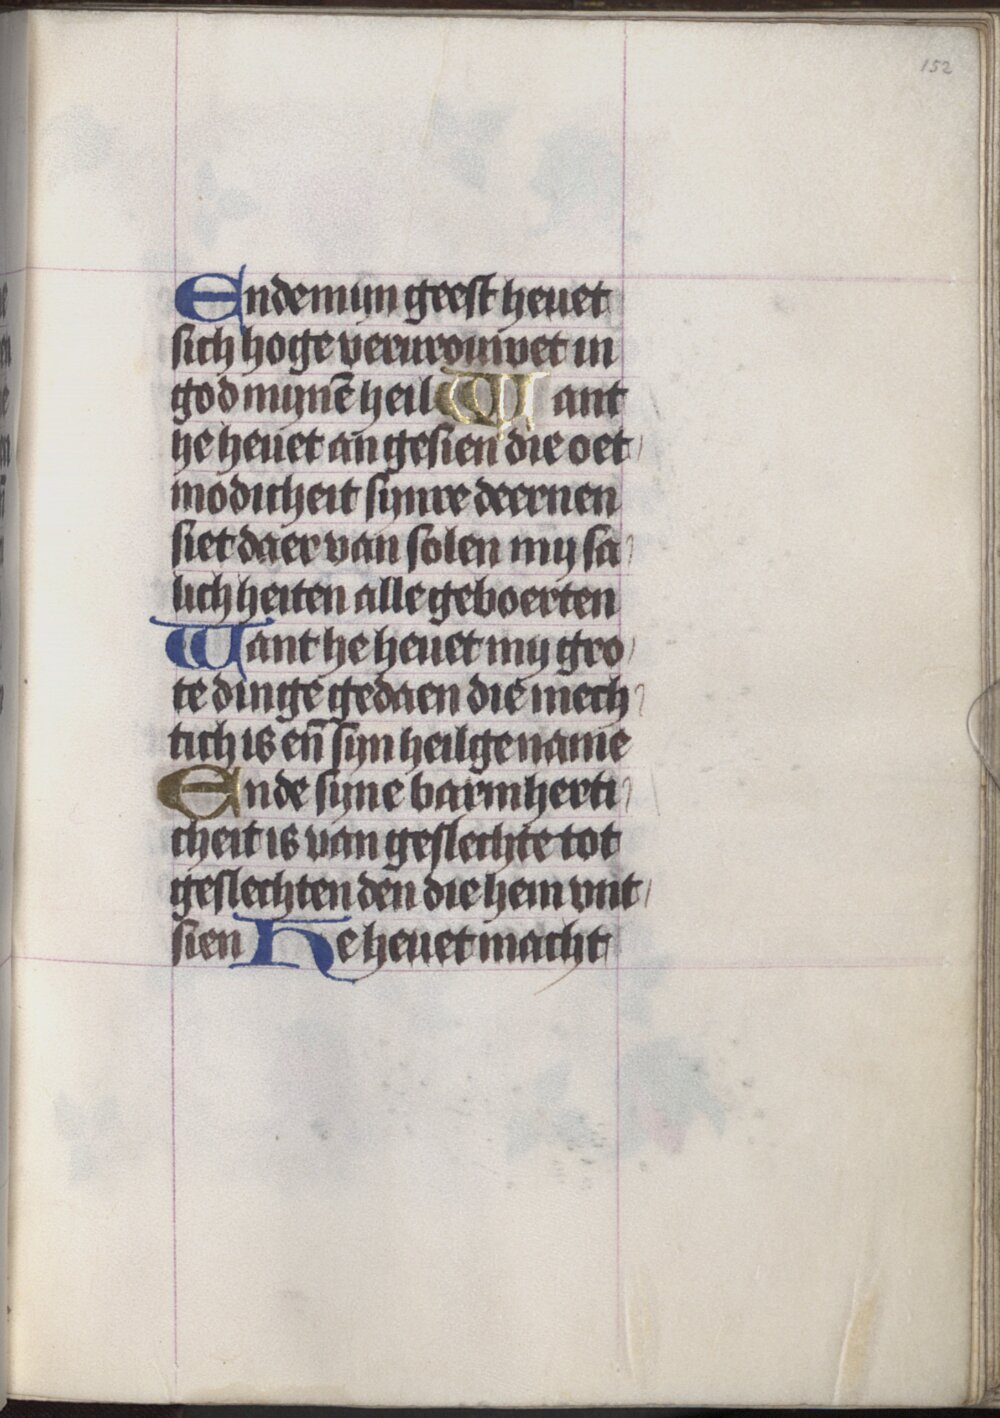 152
Ende mijn geest heuet
sich hoge verurouwet in
god mijnē heil Want
he heuet an gesien die oet/
modicheit sijnre deernen
siet daer van solen mij sa/
lich heiten alle geboerten
Want he heuet mij gro/
te dinge gedaen die mech/
tich is en̄ sijn heilge name
Ende sijne barmherti/
cheit is van geslechte tot
geslechten den die hem vnt/
sien He heuet macht